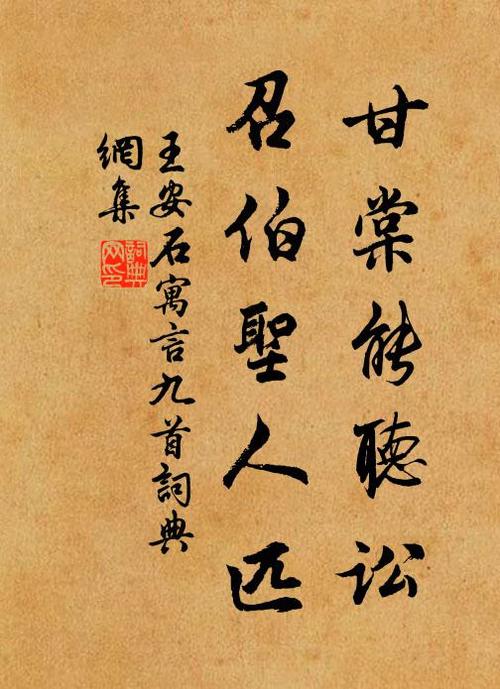 甘棠能聽訟
召伯聖人匹
王安石寓言九首詞典
網集
詞典網印